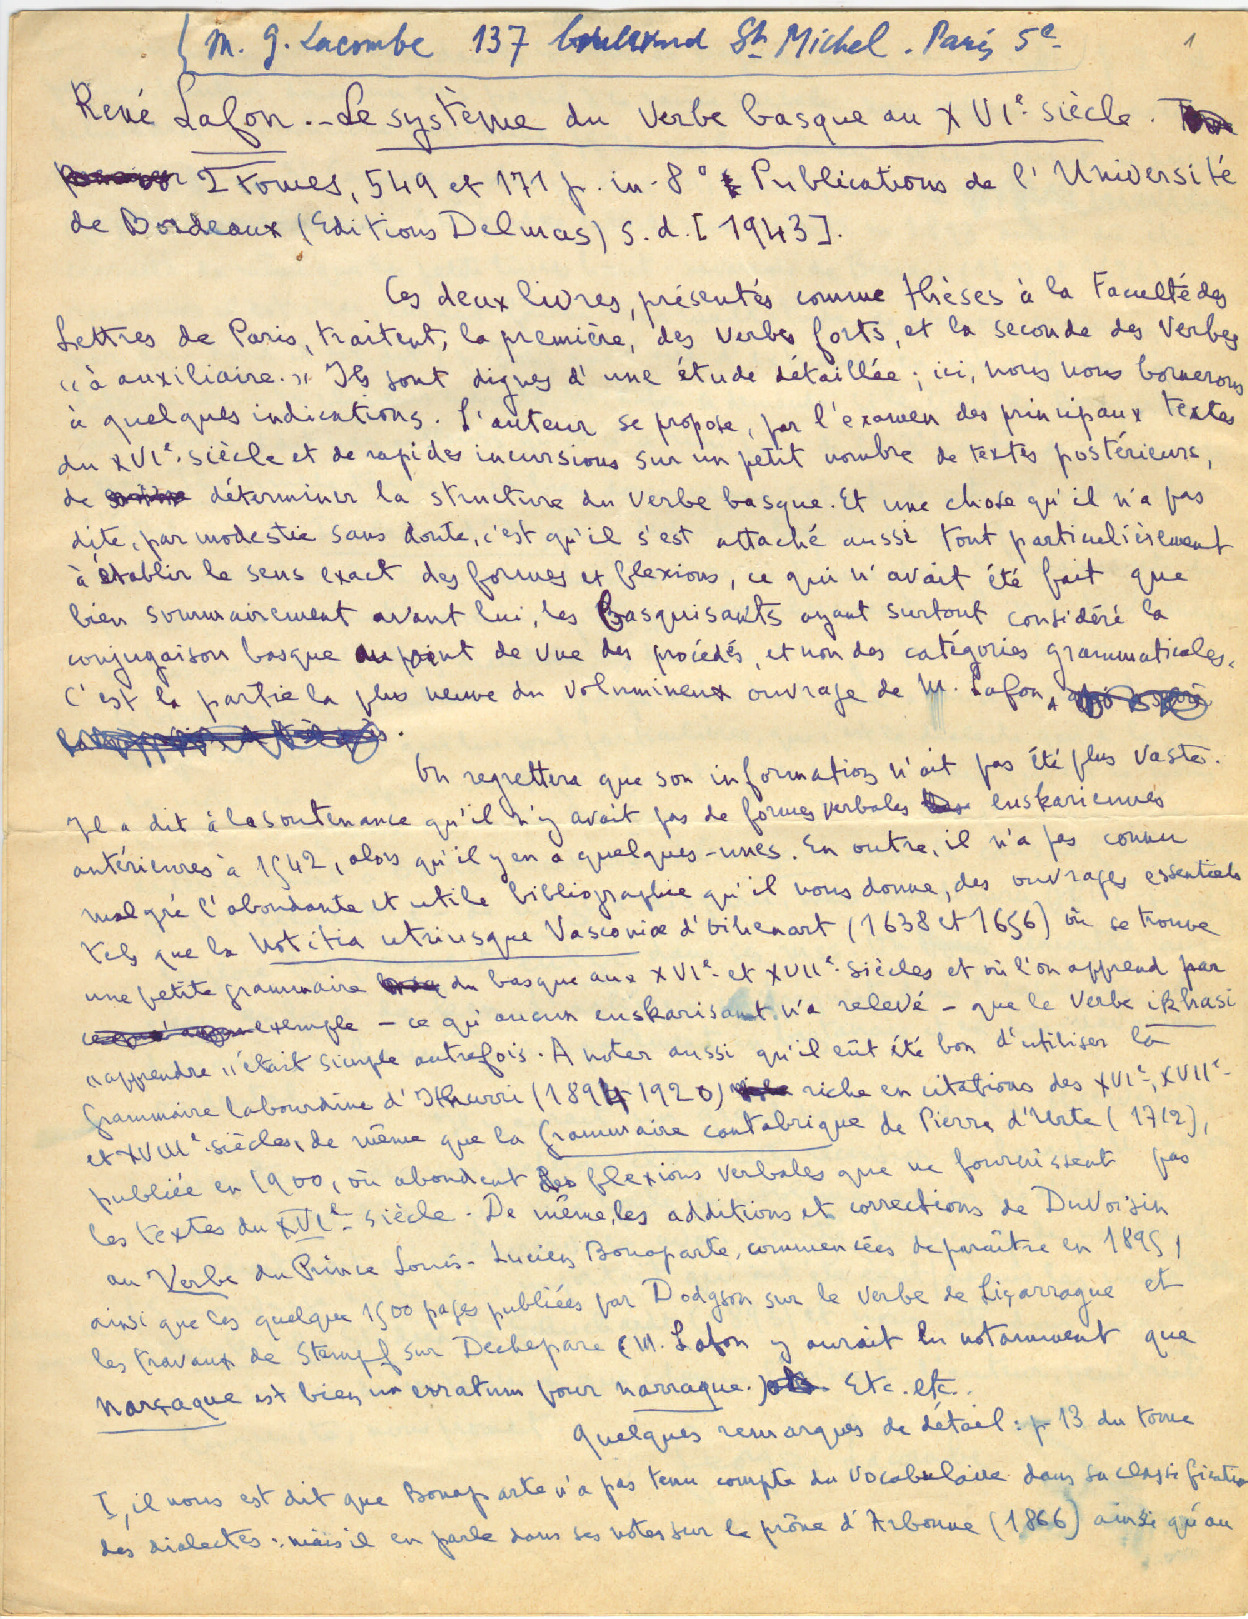 M. G. Lacombe 137 boulevard St Michel. Paris 5e
1
René Lafon. – Le système du verbe basque au XVIe siècle.
2 tomes, 549 et 171 p. in-8° Publications de l'Université
de Bordeaux (Editions Delmas) s.d. [1943].
Ces deux livres, présentés comme thèses à la Faculté des
Lettres de Paris, traitent, la première, des verbes forts, et la seconde des verbes
"à auxiliaire." Ils sont dignes d'une étude détaillée ; ici, nous nous bornerons
à quelques indications. L'auteur se propose, par l'examen des principaux textes
du XVIe siècle et de rapides incursions sur un petit nombre de textes postérieurs,
de déterminer la structure du verbe basque. Et une chose qu'il n'a pas
dite, par modestie sans doute, c'est qu'il s'est attaché aussi tout particulièrement
à établir le sens exact des formes et flexions, ce qui n'avait été fait que
bien sommairement avant lui, les Basquisants ayant surtout considéré la
conjugaison basque au point de vue des procédés, et non des catégories grammaticales.
C'est la partie la plus neuve du volumineux ouvrage de M. Lafon
.
On regrettera que son information n'ait pas été plus vaste.
Il a dit à la soutenance qu'il n'y avait pas de formes verbales euskariennes
antérieures à 1542, alors qu'il y en a quelques-unes. En outre, il n'a pas connu
malgré l'abondante et utile bibliographie qu'il nous donne, des ouvrages essentiels
tels que la Notitia utriusque Vasconiæ d'Oihenart (1638 et 1656) où se trouve
une petite grammaire du basque aux XVIe et XVIIe siècles et où l'on apprend par
exemple – ce qu'aucun euskarisant n'a relevé – que le verbe ikhasi
"apprendre" était simple autrefois. A noter aussi qu'il eût été bon d'utiliser la
Grammaire labourdine d'Ithurri (1894 1920) riche en citations des XVIe, XVIIe
et XVIIIe siècles, de même que la Grammaire cantabrique de Pierre d'Urte (1712),
publiée en 1900, où abondent des flexions verbales que ne fournissent pas
les textes du XVIe siècle. De même, les additions et corrections de DuVoisin
au Verbe du Prince Louis-Lucien Bonaparte, commencées de paraître en 1895,
ainsi que les quelque 1500 pages publiées par Dodgson sur le verbe de Liçarrague et
les travaux de Stempf sur Dechepare (M. Lafon y aurait lu notamment que
narçaque est bien un erratum pour narraque.) Etc. etc.
Quelques remarques de détail : p. 13 du tome
I, il nous est dit que Bonaparte n'a pas tenu compte du vocabulaire dans sa classification
des dialectes : mais il en parle dans ses notes sur le prône d'Arbonne (1866) ainsi qu'au